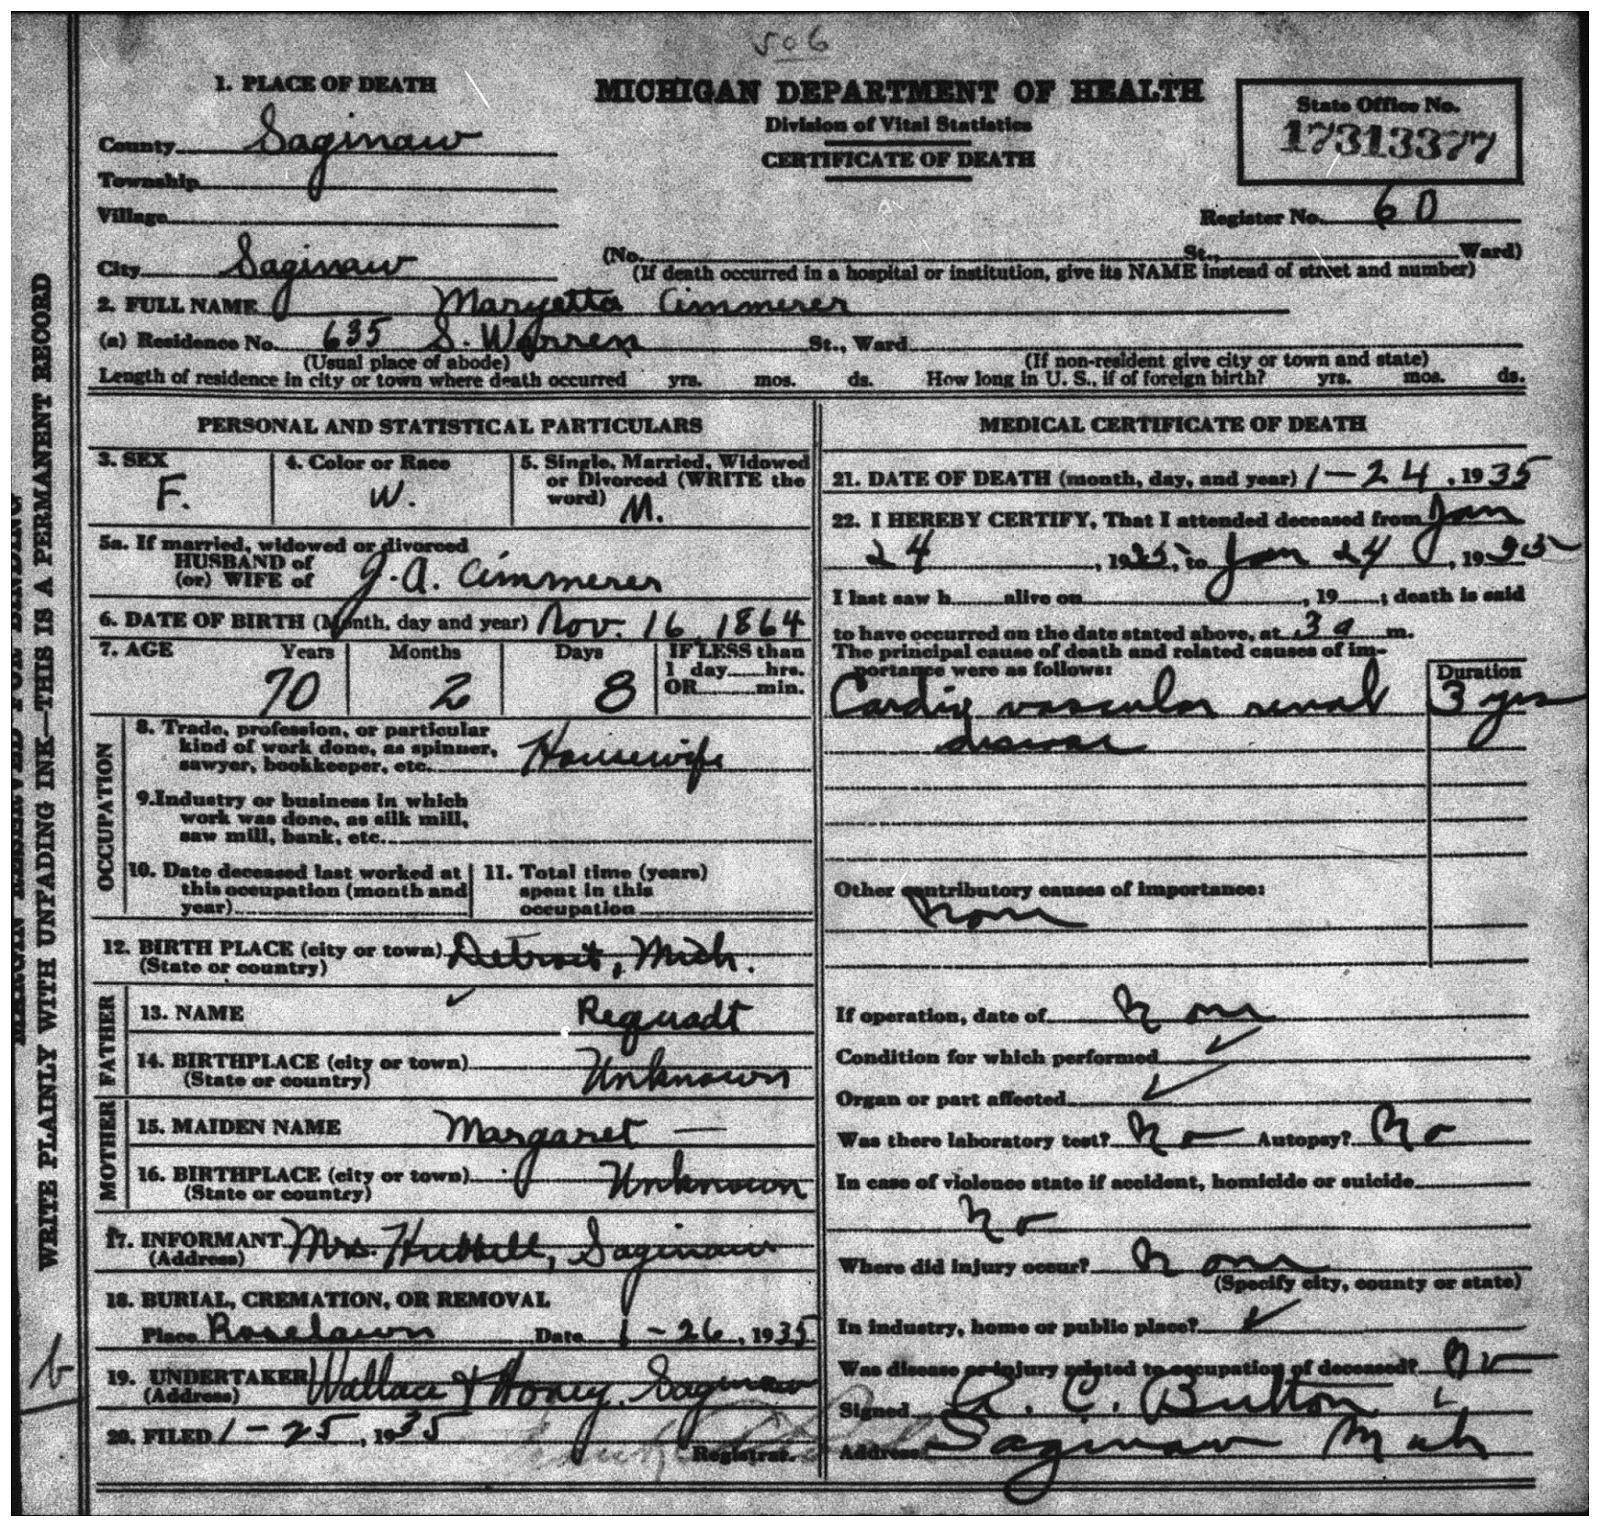 506
1. PLACE OF DEATH
MICHIGAN DEPARTMENT OF HEALTH
Division of Vital Statistics
CERTIFICATE OF DEATH
State Office No.
17313377
County Saginaw
Township
Village
Register No. 60
City Saginaw
(No. St., Ward)
(If death occurred in a hospital or institution, give its NAME instead of street and number)
2. FULL NAME Maryetta Cimmerer
(a) Residence No. 635 S. Warren St., Ward
(Usual place of abode) (If non-resident give city or town and state)
Length of residence in city or town where death occurred yrs. mos. ds. How long in U. S., if of foreign birth? yrs. mos. ds.
WRITE PLAINLY WITH UNFADING INK—THIS IS A PERMANENT RECORD
PERSONAL AND STATISTICAL PARTICULARS
3. SEX
F.
4. Color or Race
W.
5. Single, Married, Widowed
or Divorced (WRITE the
word) M.
5a. If married, widowed or divorced
HUSBAND of
(or) WIFE of J. A. Cimmerer
6. DATE OF BIRTH (Month, day and year) Nov. 16, 1864
7. AGE Years Months Days IF LESS than
1 day hrs.
OR min.
70 2 8
OCCUPATION
8. Trade, profession, or particular
kind of work done, as spinner,
sawyer, bookkeeper, etc. Housewife
9. Industry or business in which
work was done, as silk mill,
saw mill, bank, etc.
10. Date deceased last worked at
this occupation (month and
year)
11. Total time (years)
spent in this
occupation
12. BIRTH PLACE (city or town) Detroit, Mich.
(State or country)
FATHER
13. NAME Requadt
14. BIRTHPLACE (city or town) Unknown
(State or country)
MOTHER
15. MAIDEN NAME Margaret —
16. BIRTHPLACE (city or town) Unknown
(State or country)
17. INFORMANT Mrs. Hubbell, Saginaw
(Address)
18. BURIAL, CREMATION, OR REMOVAL
Place Roselawn Date 1-26, 1935
19. UNDERTAKER Wallace & Honey, Saginaw
(Address)
20. FILED 1-25, 1935
Registrar.
b
MEDICAL CERTIFICATE OF DEATH
21. DATE OF DEATH (month, day, and year) 1-24, 1935
22. I HEREBY CERTIFY, That I attended deceased from Jan
24, 1935, to Jan 24, 1935
I last saw h alive on , 19 ; death is said
to have occurred on the date stated above, at 3 a m.
The principal cause of death and related causes of im-
portance were as follows:
Duration
Cardio vascular renal 3 yrs
disease
Other contributory causes of importance:
None
If operation, date of None
Condition for which performed
Organ or part affected
Was there laboratory test? No Autopsy? No
In case of violence state if accident, homicide or suicide
No
Where did injury occur? None
(Specify city, county or state)
In industry, home or public place?
Was disease or injury related to occupation of deceased? No
Signed A. C. Button
Address Saginaw Mich